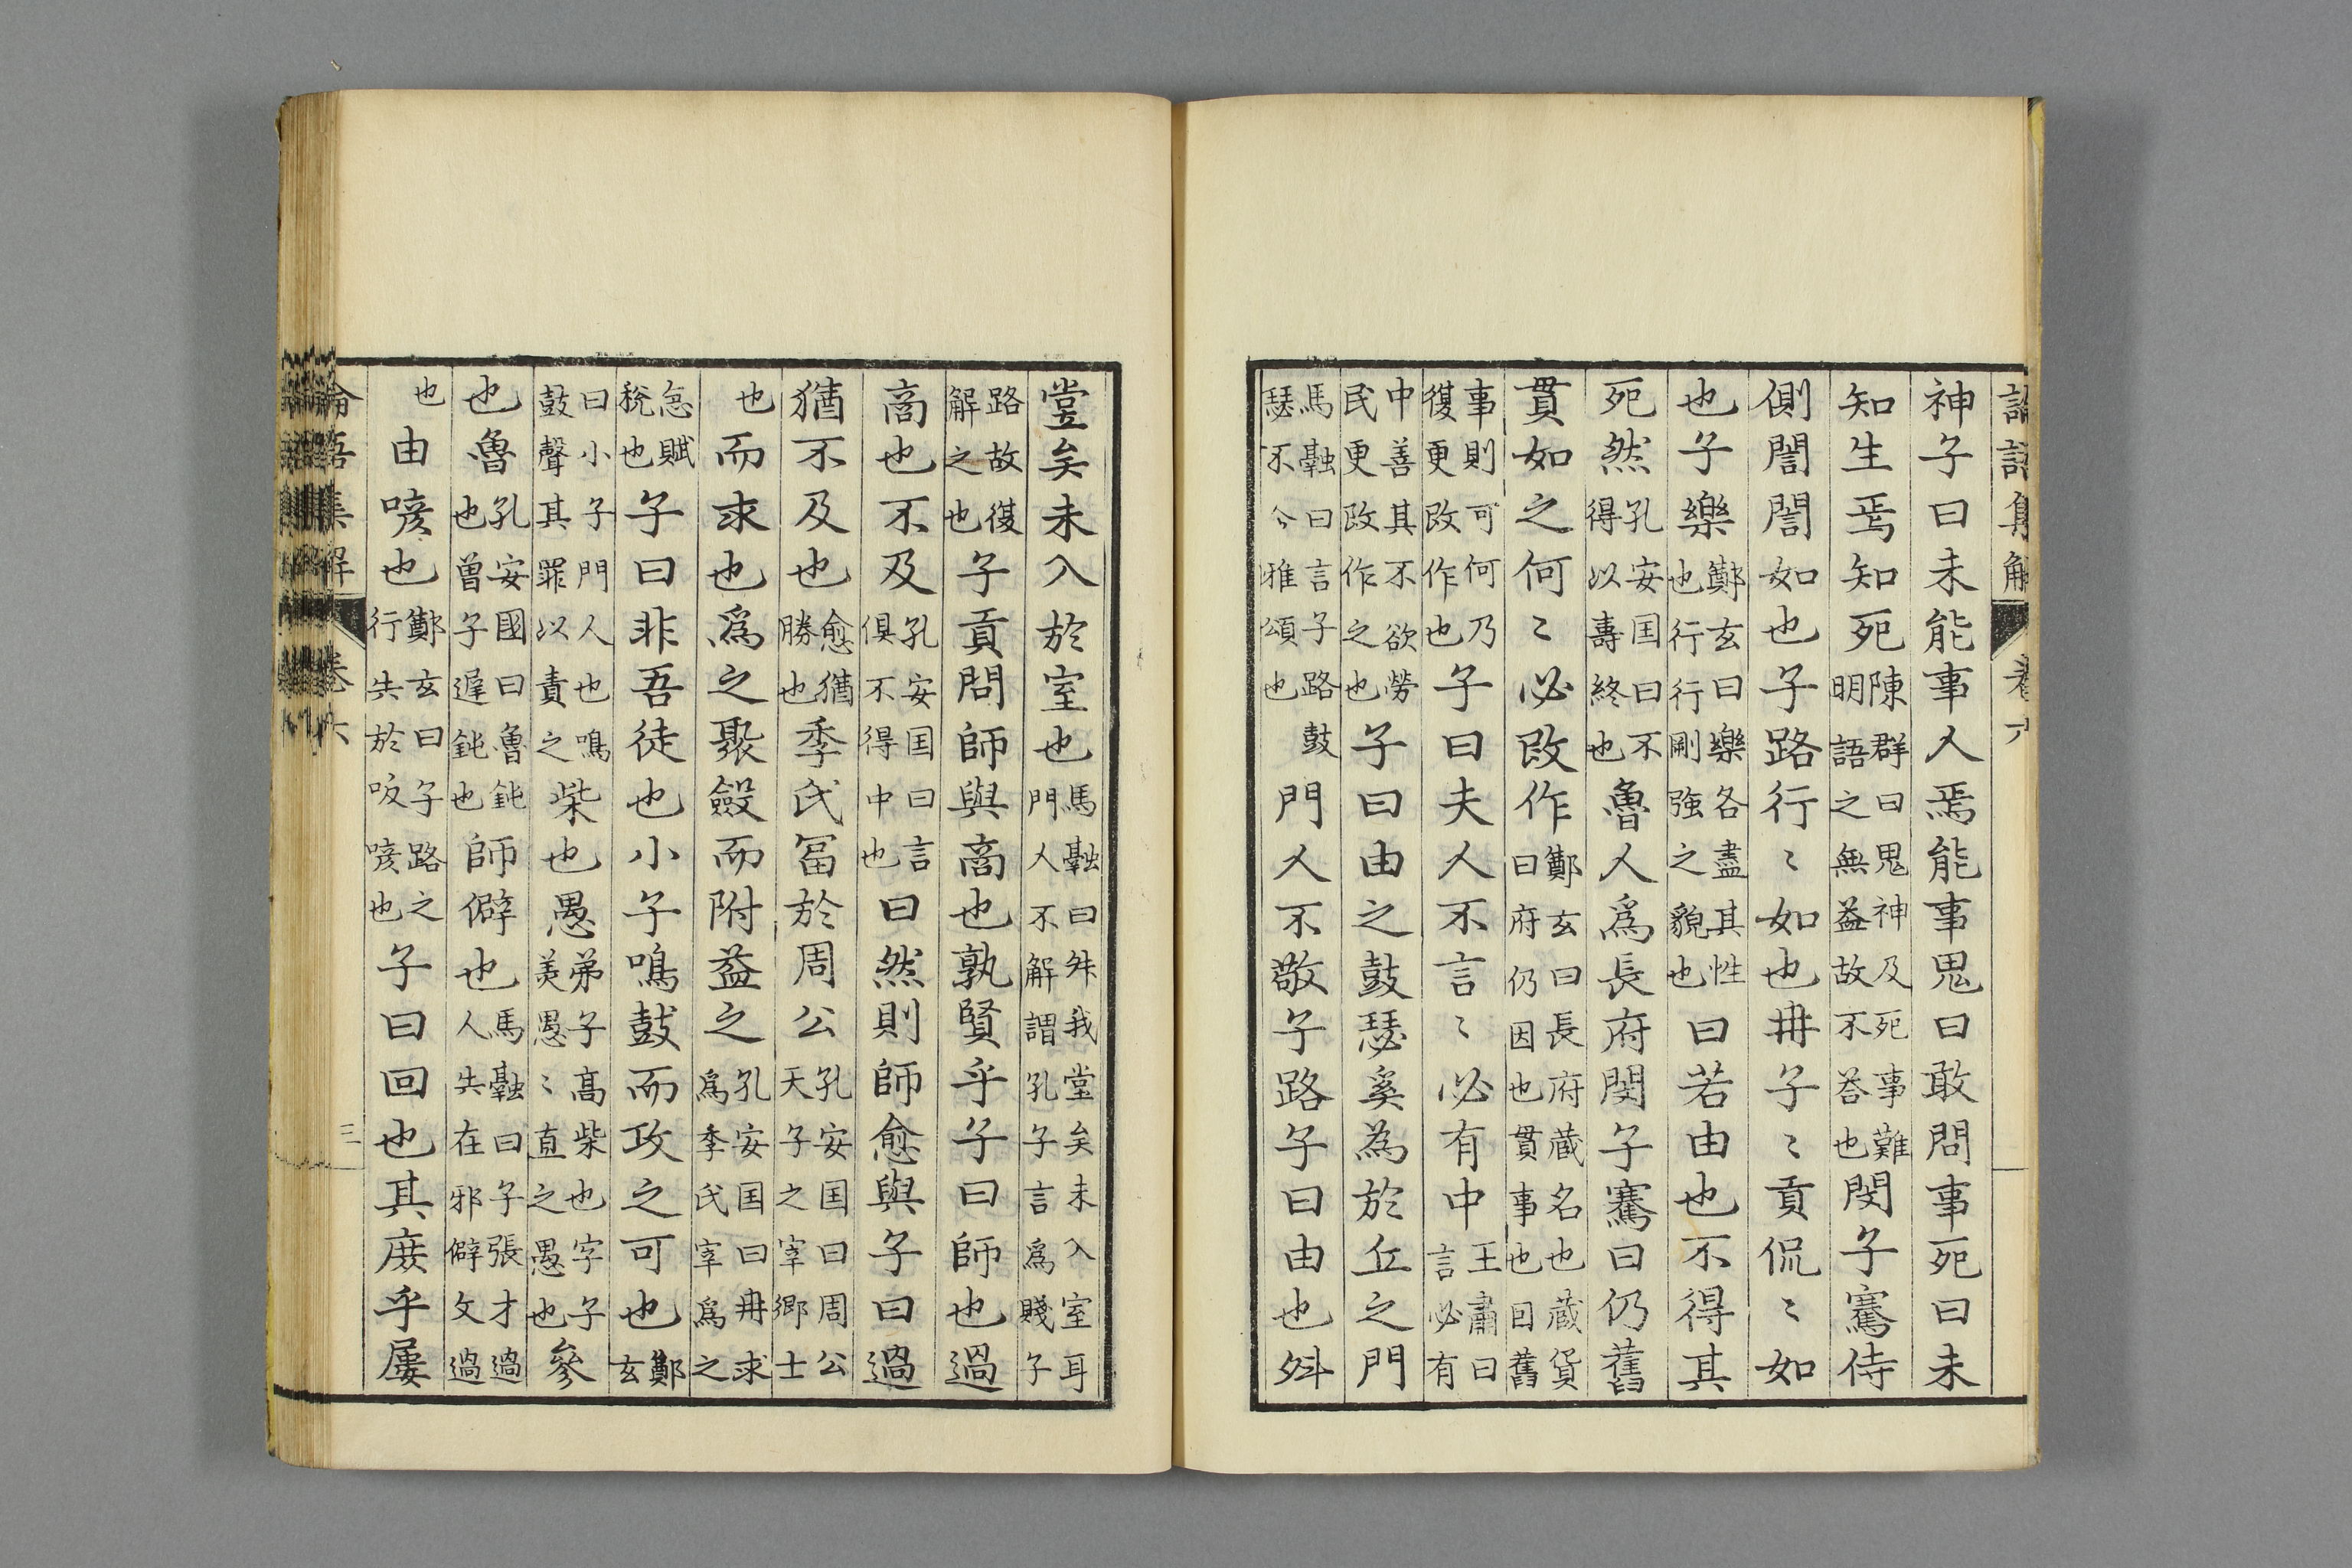 論語集解 卷六
神子曰未能事人焉能事鬼曰敢問事死曰未
知生焉知死陳群曰鬼神及死事難明語之無益故不荅也閔子騫侍
側誾誾如也子路行〻如也冉子〻貢侃〻如
也子樂鄭玄曰樂各盡其性也行行剛強之貌也曰若由也不得其
死然孔安国曰不得以壽終也魯人爲長府閔子騫曰仍舊
貫如之何〻必改作鄭玄曰長府蔵名也蔵貨曰府仍因也貫事也因舊
事則可何乃復更改作也子曰夫人不言〻必有中王肅曰言必有
中善其不欲勞民更改作之也子曰由之鼓瑟奚為於丘之門
馬融曰言子路鼓瑟不合雅頌也門人不敬子路子曰由也舛
堂矣未入於室也馬融曰舛我堂矣未入室耳門人不解謂孔子言爲賤子
路故復解之也子貢問師與商也孰賢乎子曰師也過
商也不及孔安国曰言俱不得中也曰然則師愈與子曰過
猶不及也愈猶勝也季氏冨於周公孔安国曰周公天子之宰卿士
也而求也爲之聚斂而附益之孔安国曰冉求爲季氏宰爲之
急賦稅也子曰非吾徒也小子鳴鼓而攻之可也鄭玄
曰小子門人也鳴鼓聲其罪以責之柴也愚弟子高柴也字子羔愚〻直之愚也參
也魯孔安國曰魯鈍也曾子遲鈍也師僻也馬融曰子張才過人失在邪僻文過
也由喭也鄭玄曰子路之行失於吸喭也子曰回也其庶乎屢
論語集解 卷六 三